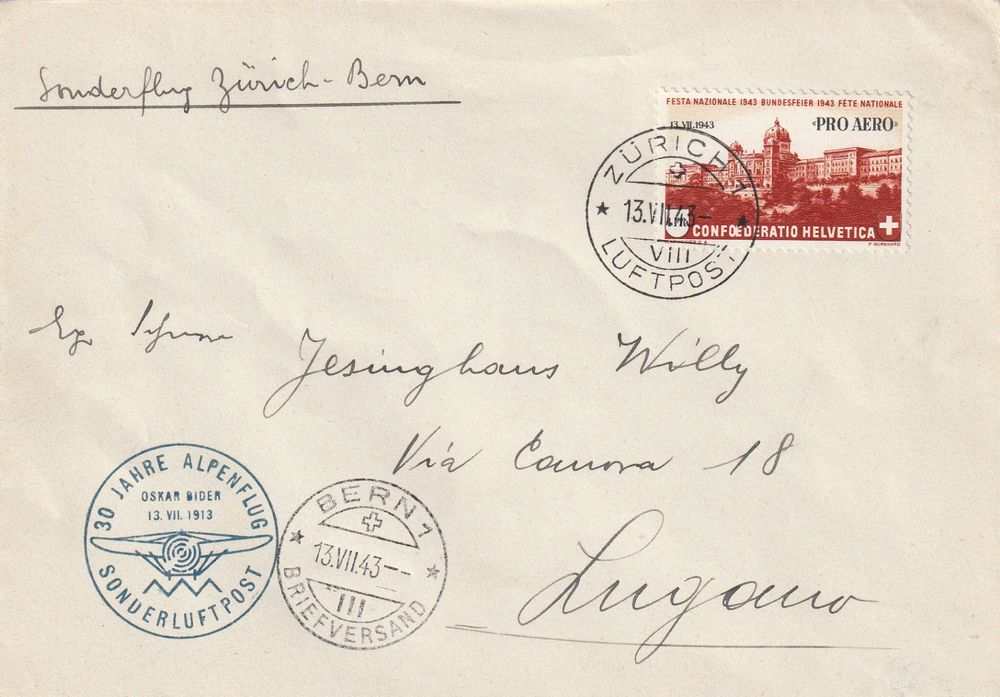 Sonderflug Zürich-Bern
FESTA NAZIONALE 1943 BUNDESFEIER 1943 FÊTE NATIONALE
13.VII.1943 «PRO AERO»
CONFŒDERATIO HELVETICA
F. BURKHARD
ZÜRICH 1
13.VII.43–
VIII
LUFTPOST
Jesinghaus Willy
Via Canova 18
Lugano
30 JAHRE ALPENFLUG
OSKAR BIDER
13. VII. 1913
SONDERLUFTPOST
BERN 1
13.VII.43--
III
BRIEFVERSAND